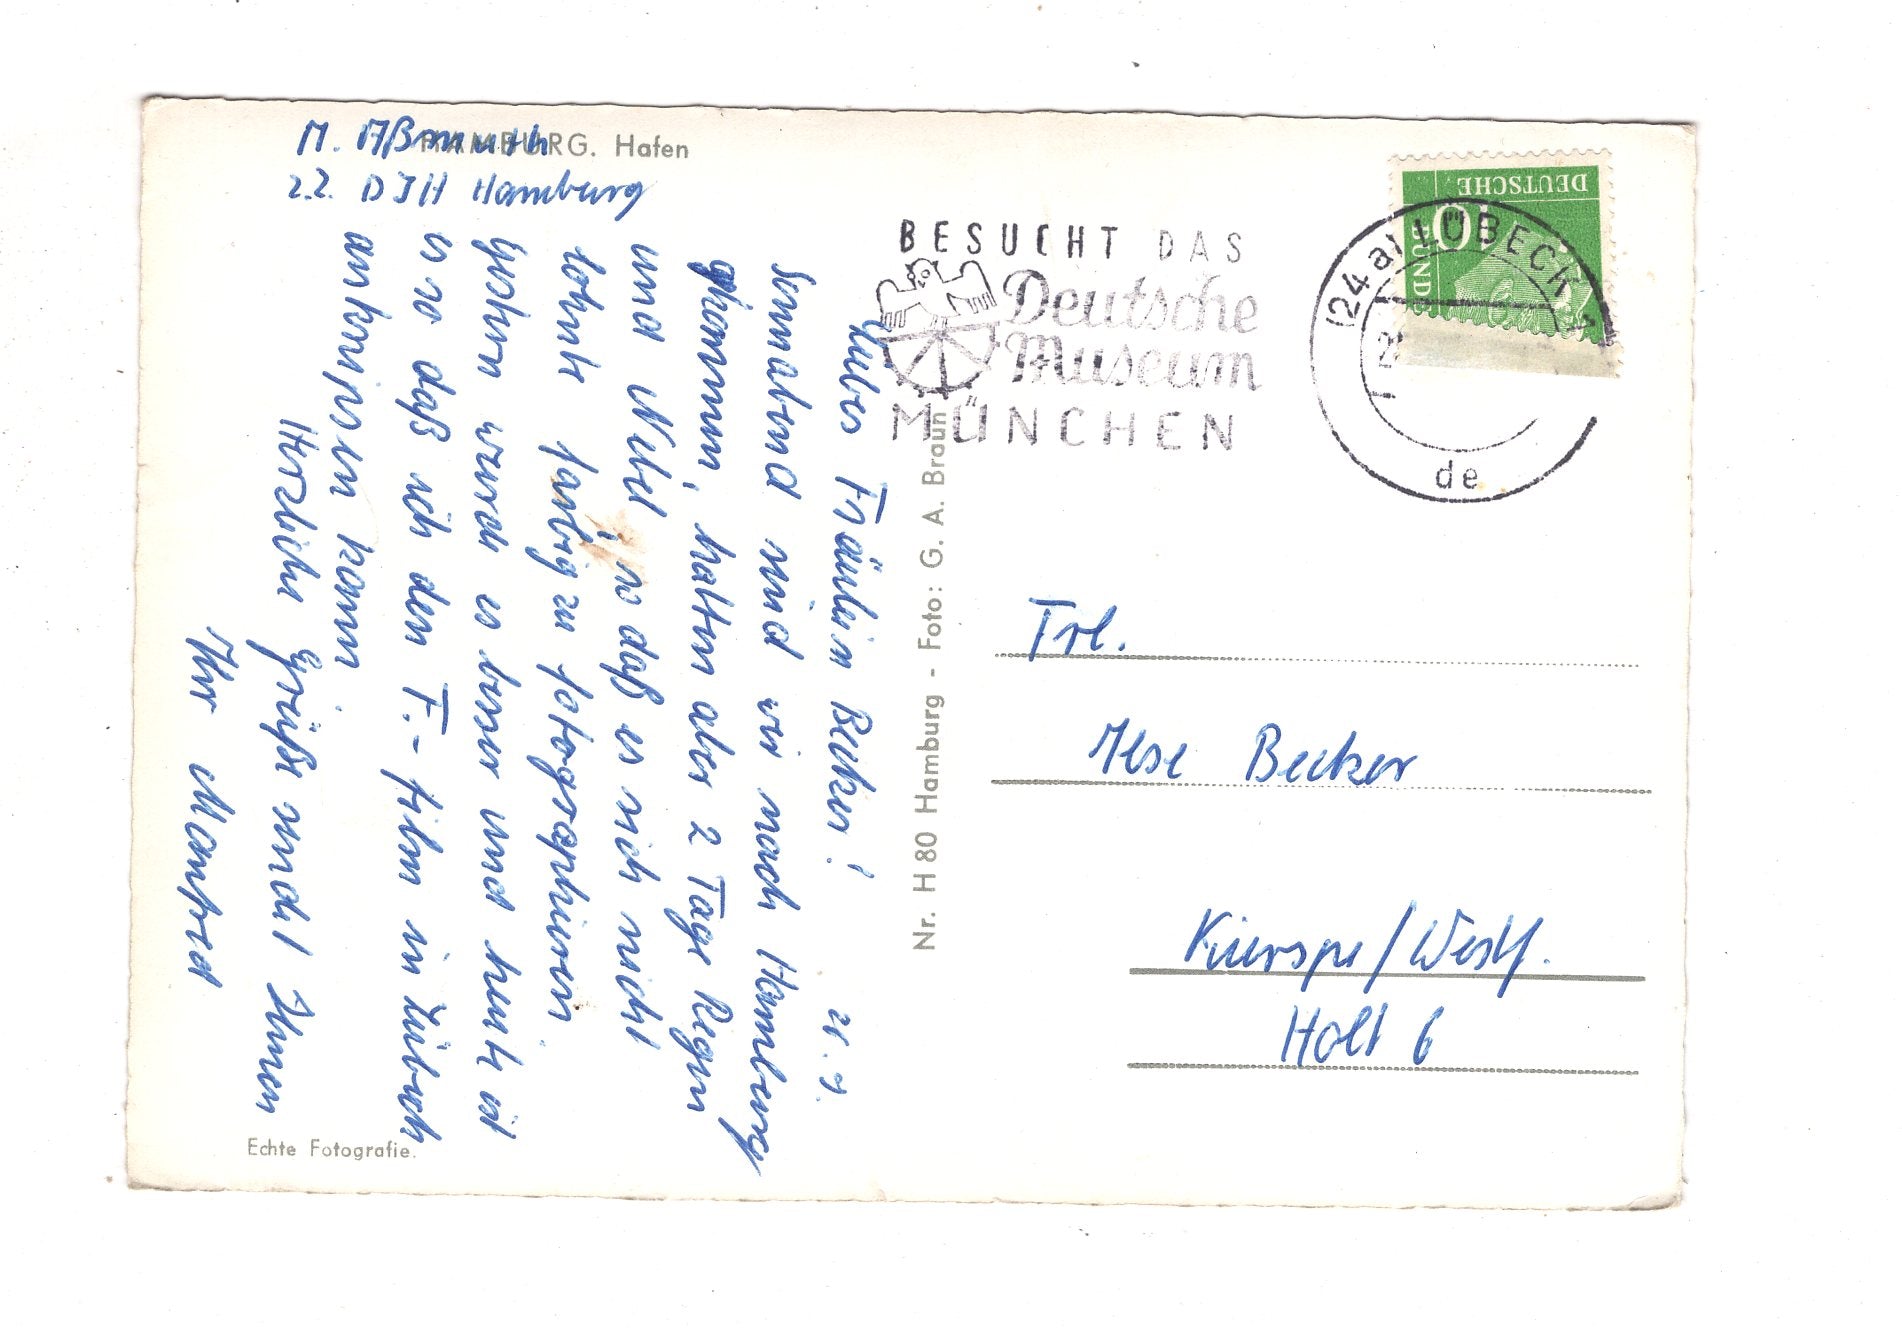 HAMBURG. Hafen
M. Aßmuth
z.Z. DJH Hamburg
Liebes Fräulein Becker!
28. 9.
Sonnabend sind wir nach Hamburg
gekommen, hatten aber 2 Tage Regen
und Nebel, so daß es nicht
lohnte farbig zu fotographieren
Gestern wurde es besser und heute ist
es so daß ich den F.-film in Lübeck
anknipsen kann.
Herzliche Grüße sendet Ihnen
Ihr Manfred
Echte Fotografie.
Nr. H 80 Hamburg - Foto: G. A. Braun
BESUCHT DAS
Deutsche
Museum
MÜNCHEN
DEUTSCHE
10
(24a) LÜBECK 1
de
Frl.
Ilse Becker
Kierspe/Westf.
Holt 6